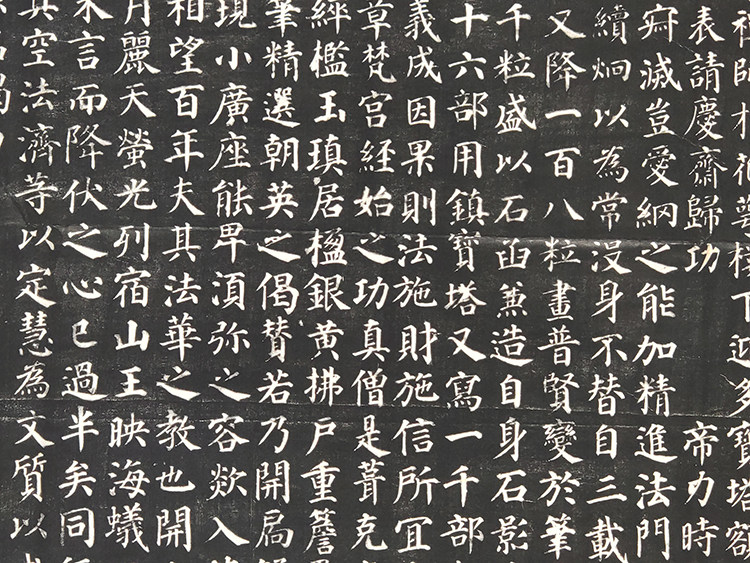 禪師於花萼樓下迎多寶塔額
表請慶齋歸功 帝力時
㝛滅豈愛網之能加精進法門
續炯以為常沒身不替自三載
又降一百八粒畫普賢變於筆
千粒盛以石函兼造自身石影
十六部用鎮寶塔又寫一千部
義成因果則法施財施信所冝
草梵宮經始之功真僧是葺克
經檻玉瑱居楹銀黃拂戶重簷
筆精選朝英之偈贊若乃開扃
現小廣座能卑湏弥之容欻入
相望百年夫其法華之教也開
月麗天螢光列宿山王映海蟻
未言而降伏之心已過半矣同
真空法濟等以定慧為文質以